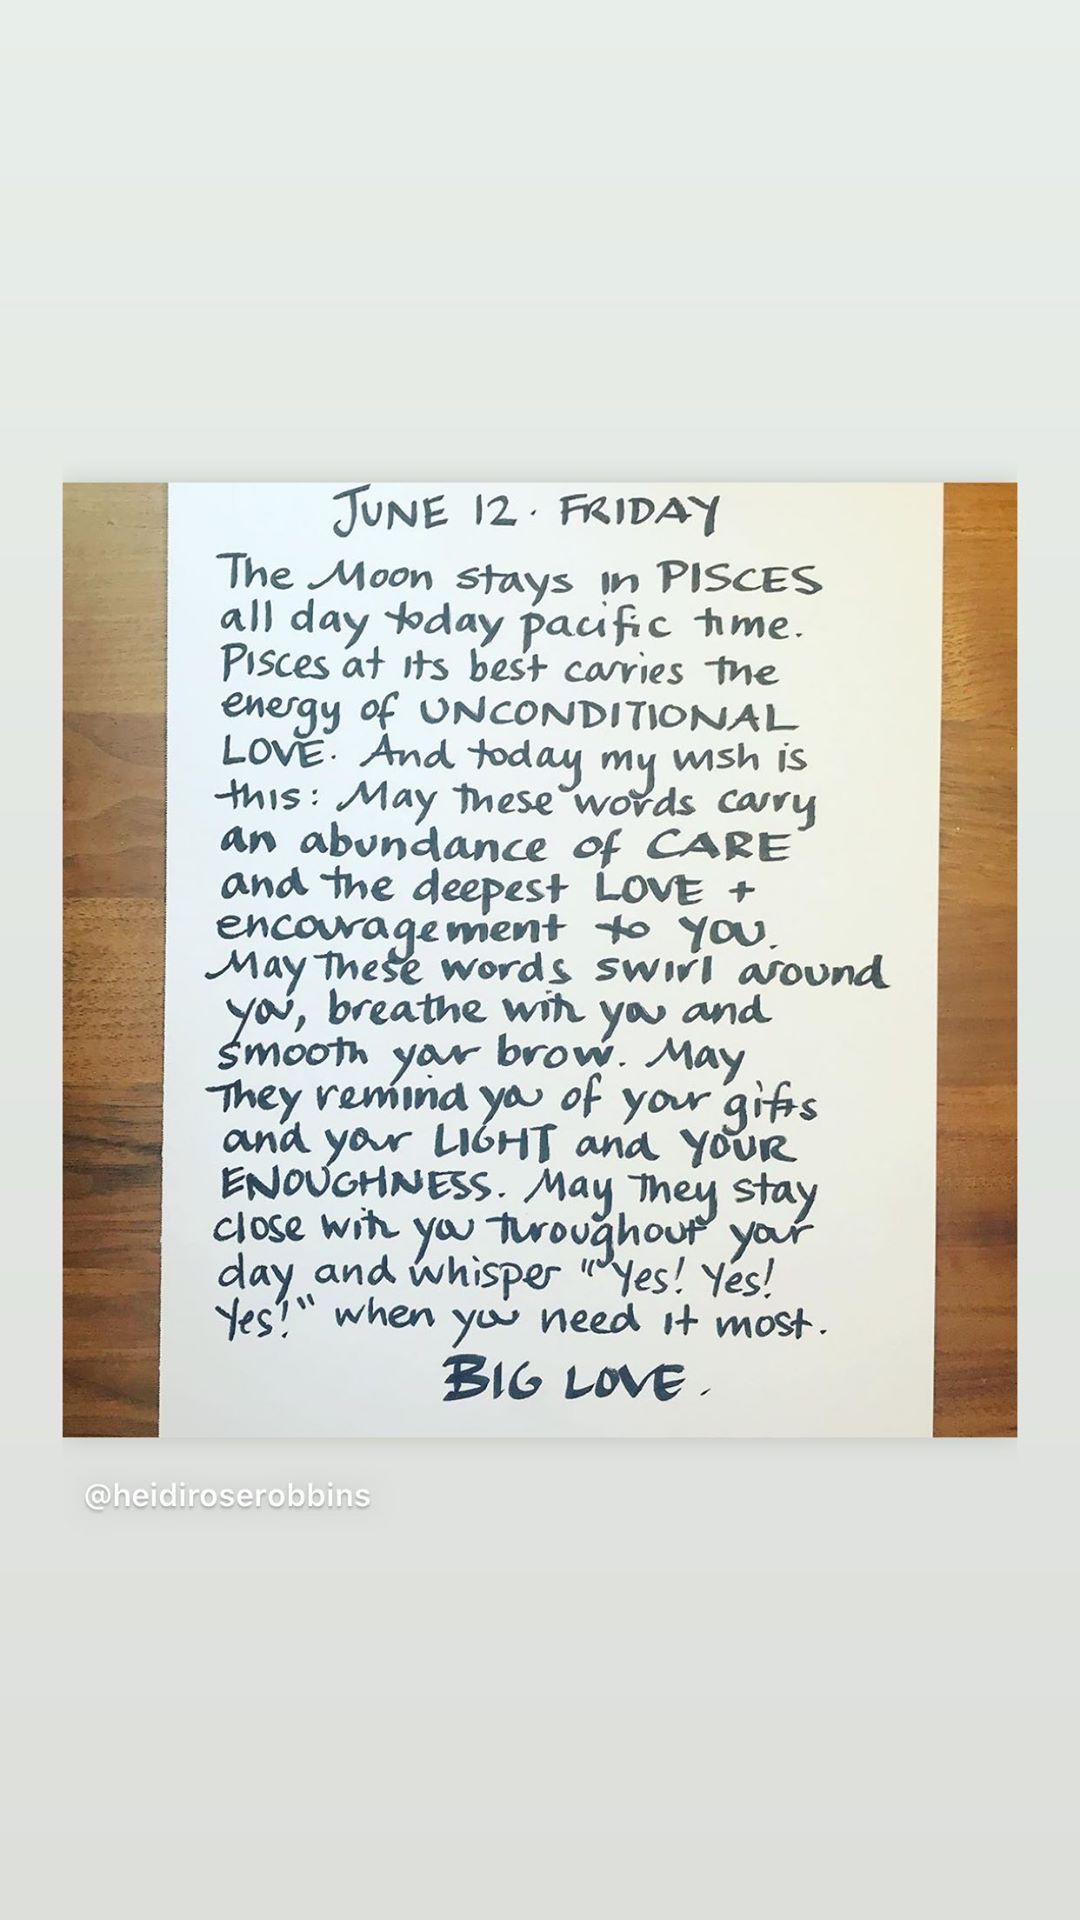 JUNE 12 · FRIDAY
The Moon stays in PISCES
all day today pacific time.
Pisces at its best carries the
energy of UNCONDITIONAL
LOVE. And today my wish is
this: May these words carry
an abundance of CARE
and the deepest LOVE +
encouragement to YOU.
May these words swirl around
you, breathe with you and
smooth your brow. May
they remind you of your gifts
and your LIGHT and YOUR
ENOUGHNESS. May they stay
close with you throughout your
day and whisper "Yes! Yes!
Yes!" when you need it most.
BIG LOVE.
@heidiroserobbins